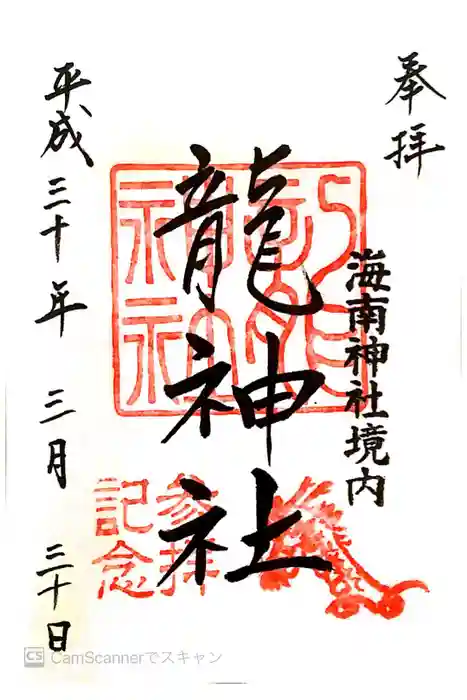 奉拝
海南神社境内
龍神社
参拝
記念
平成三十年三月三十日
CS CamScannerでスキャン